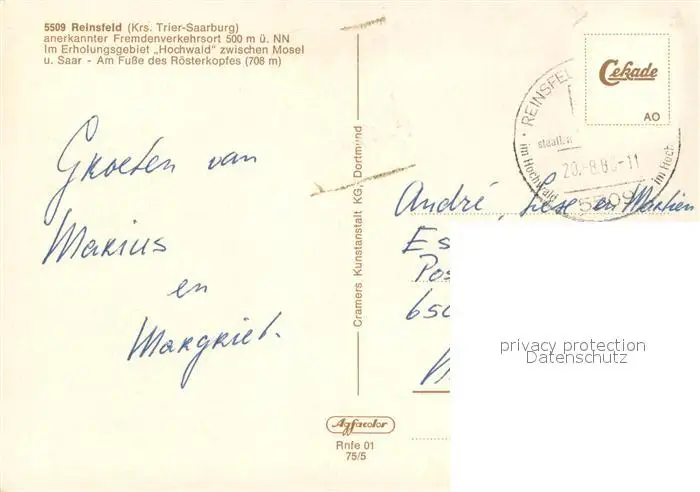 5509 Reinsfeld (Krs. Trier-Saarburg)
anerkannter Fremdenverkehrsort 500 m ü. NN
Im Erholungsgebiet „Hochwald" zwischen Mosel
u. Saar - Am Fuße des Rösterkopfes (708 m)
Groeten van
Marius
en
Margriet.
Cramers Kunstanstalt KG, Dortmund
Agfacolor
Rnfe 01
75/5
Cekade
AO
REINSFEL
staatl.
im Hochwald
im Hoch
5509
André, Liese en Martien
Es
Pos
650
privacy protection
Datenschutz